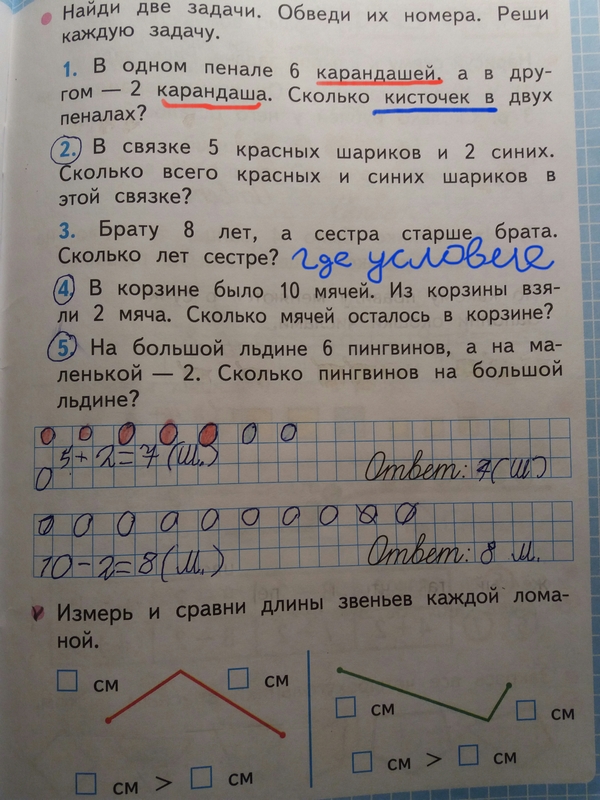 Найди две задачи. Обведи их номера. Реши
каждую задачу.
1. В одном пенале 6 карандашей, а в дру-
гом — 2 карандаша. Сколько кисточек в двух
пеналах?
2. В связке 5 красных шариков и 2 синих.
Сколько всего красных и синих шариков в
этой связке?
3. Брату 8 лет, а сестра старше брата.
Сколько лет сестре? где условие
4. В корзине было 10 мячей. Из корзины взя-
ли 2 мяча. Сколько мячей осталось в корзине?
5. На большой льдине 6 пингвинов, а на ма-
ленькой — 2. Сколько пингвинов на большой
льдине?
5+2=7(ш.)
Ответ: 7(ш)
10-2=8(м.)
Ответ: 8 м.
Измерь и сравни длины звеньев каждой лома-
ной.
см см
см см
см > см
см > см